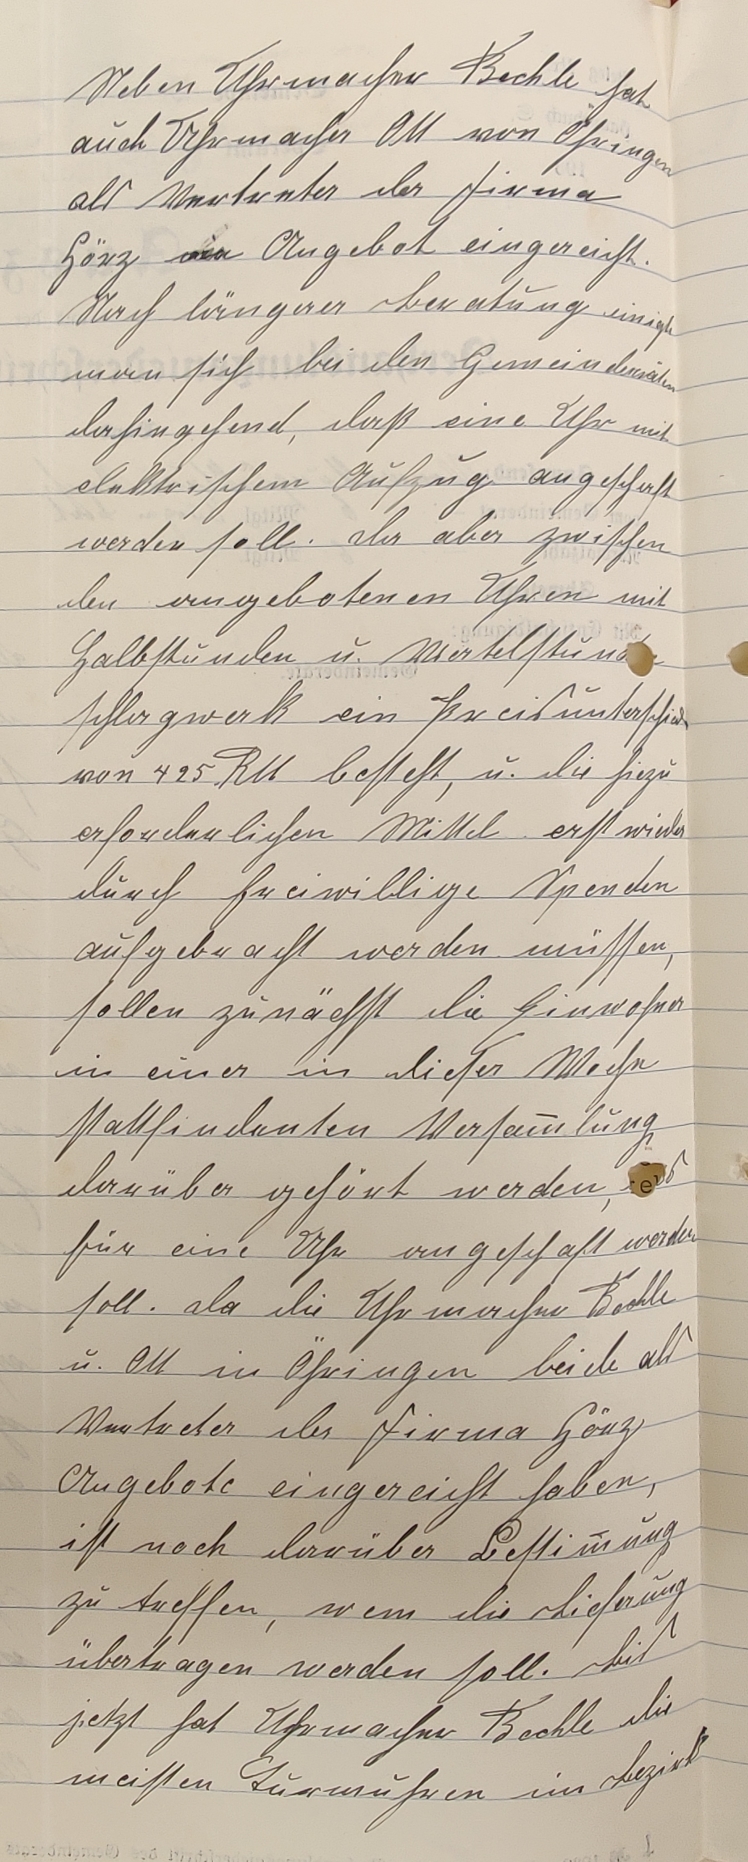 Neben Uhrmacher Bechle hat
auch Uhrmacher Ott von Öhringen
als Vertreter der Firma
Hörz ein Angebot eingereicht.
Nach längerer Beratung einigte
man sich bei den Gemeinderäten
dahingehend, daß eine Uhr mit
elektrischem Aufzug angeschafft
werden soll. Da aber zwischen
den angebotenen Uhren mit
Halbstunden u. Viertelstunden
schlagwerk ein Preisunterschied
von 425 RM besteht, u. die hiezu
erforderlichen Mittel erst wieder
durch freiwillige Spenden
aufgebracht werden müssen,
sollen zunächst die Einwohner
in einer in dieser Woche
stattfindenten Versam̅lung
darüber gehört werden, was
für eine Uhr angeschafft werden
soll. Da die Uhrmacher Bechle
u. Ott in Öhringen beide als
Vertreter der Firma Hörz
Angebote eingereicht haben,
ist noch darüber Bestim̅ung
zu treffen, wem die Lieferung
übertragen werden soll. Bis
jetzt hat Uhrmacher Bechle die
meisten Turmuhren im Bezirk